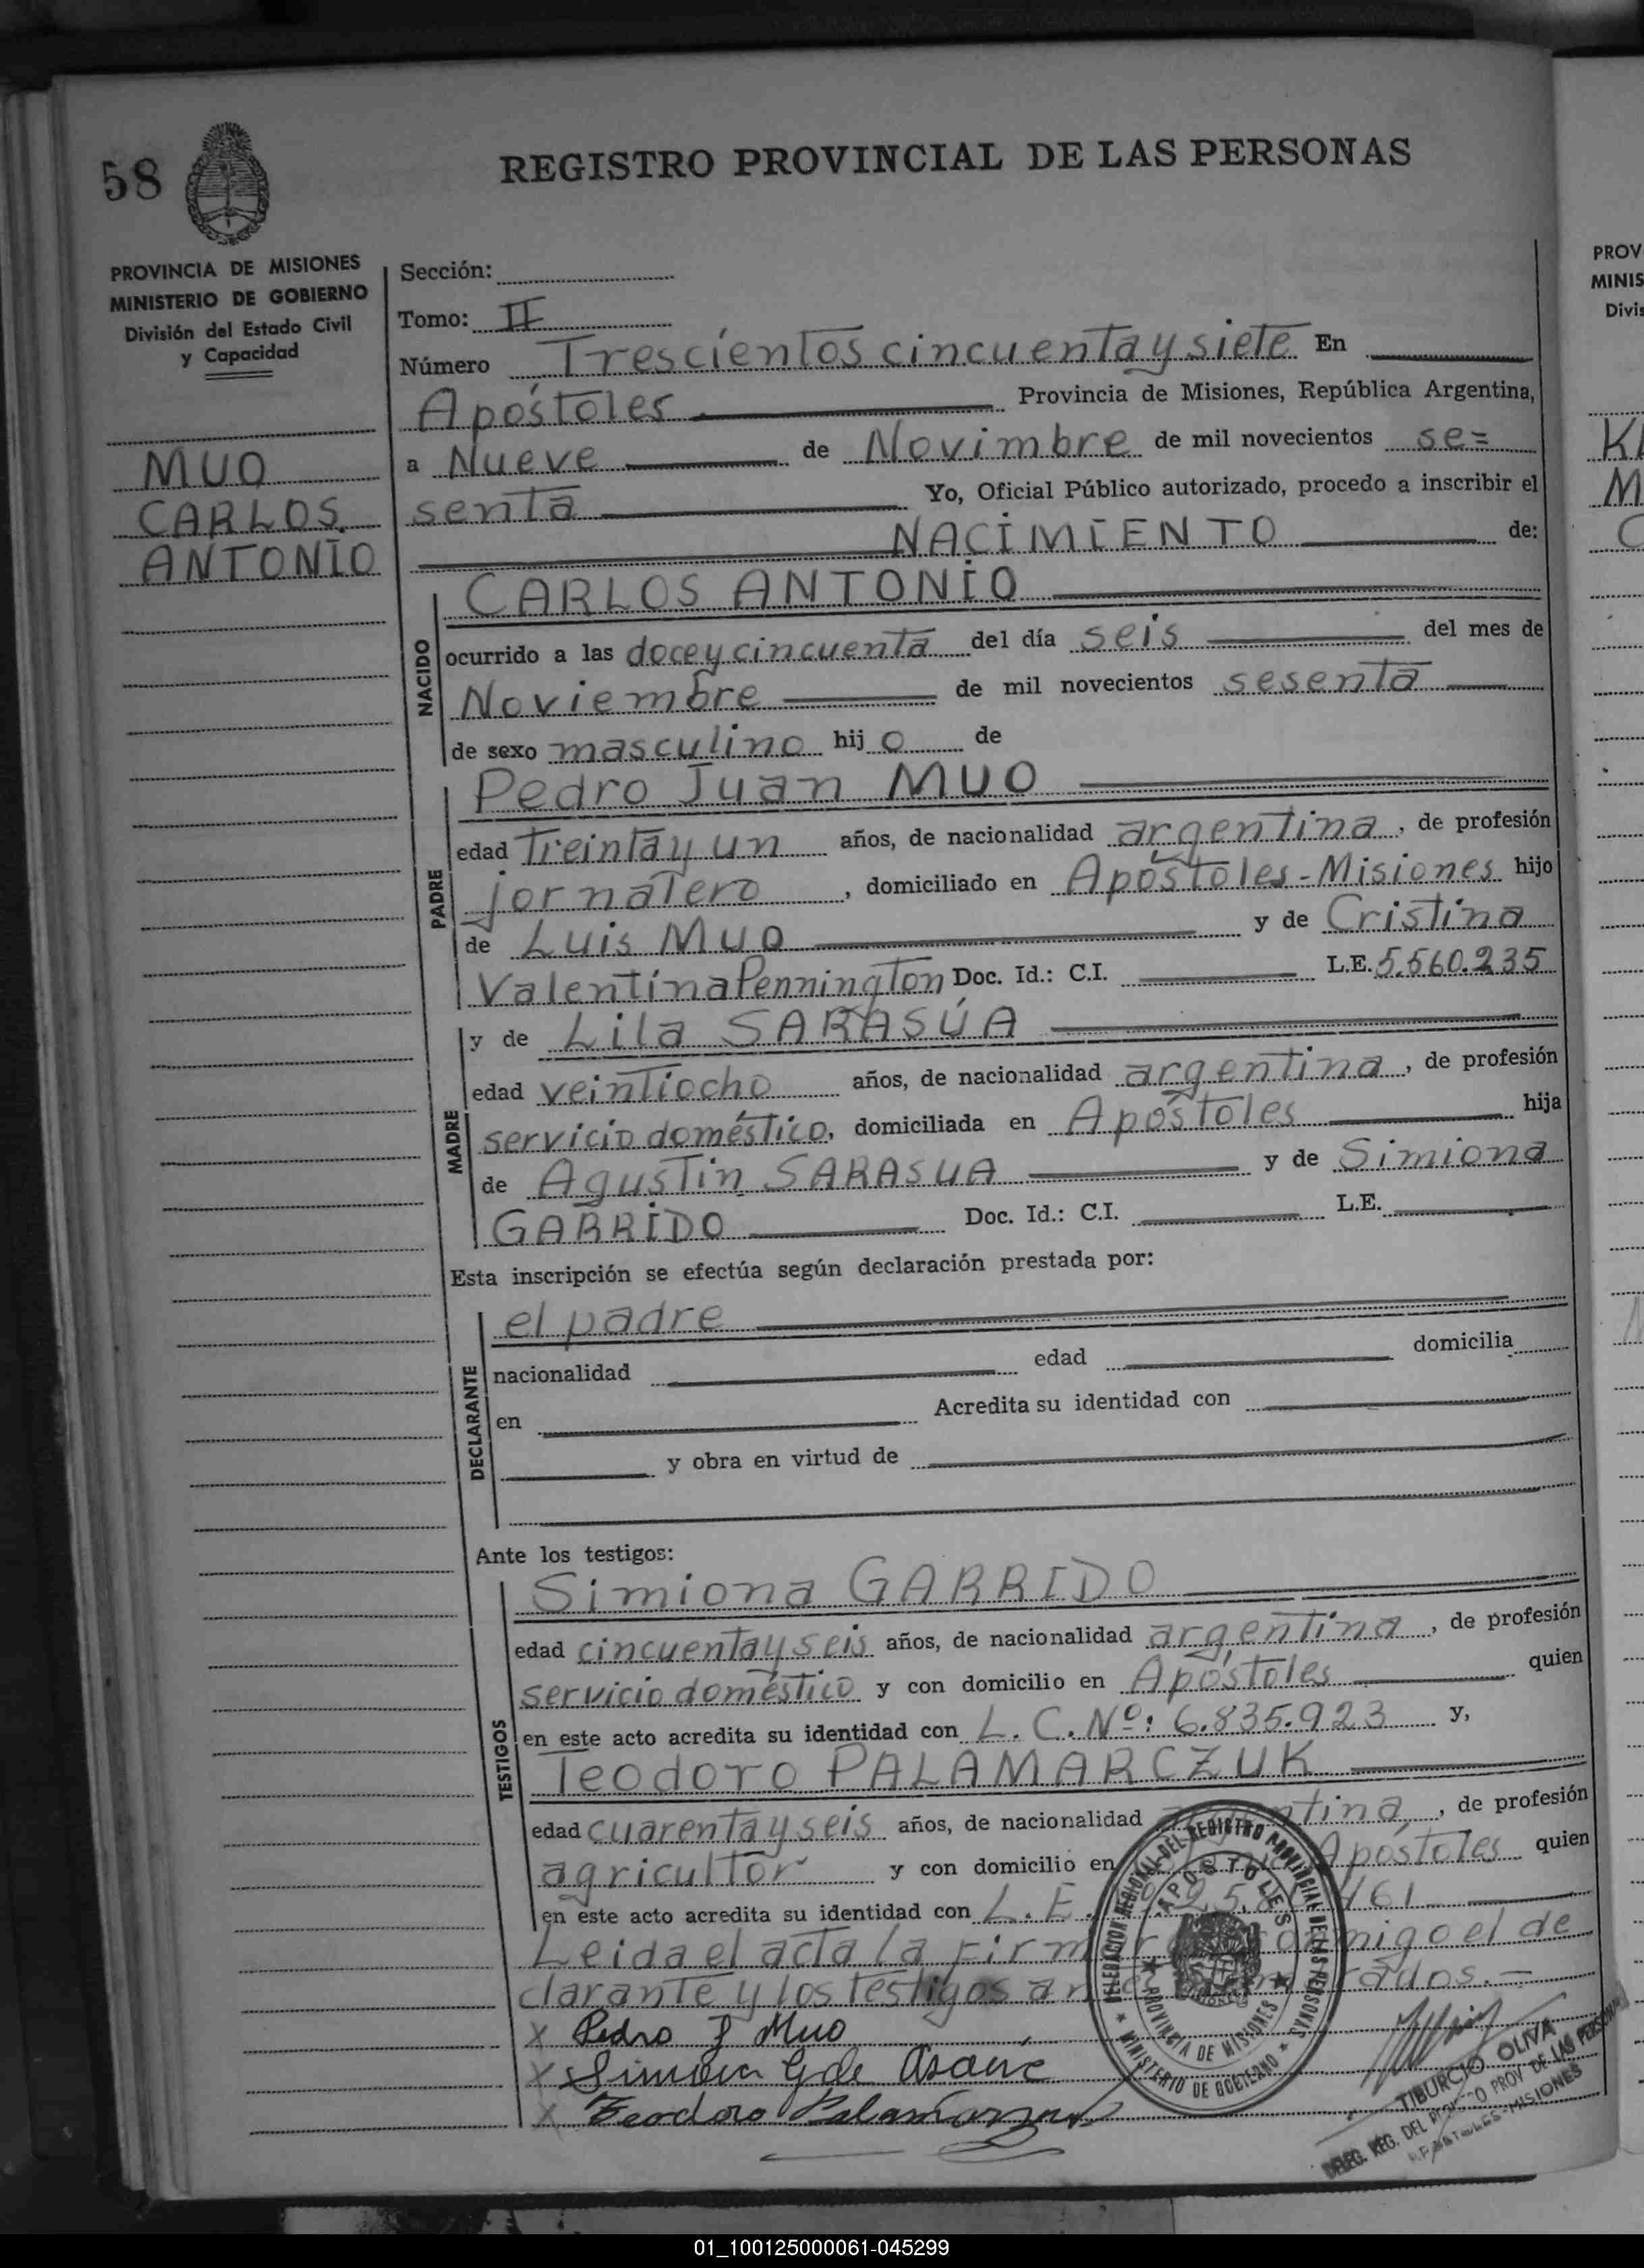 58
REGISTRO PROVINCIAL DE LAS PERSONAS
PROVINCIA DE MISIONES
MINISTERIO DE GOBIERNO
División del Estado Civil
y Capacidad
MUO
CARLOS
ANTONIO
Sección:
Tomo: II
Número Trescientos cincuenta y siete En
Apóstoles Provincia de Misiones, República Argentina,
a Nueve de Novimbre de mil novecientos se=
senta Yo, Oficial Público autorizado, procedo a inscribir el
NACIMIENTO de:
NACIDO
CARLOS ANTONIO
ocurrido a las doce y cincuenta del día seis del mes de
Noviembre de mil novecientos sesenta
de sexo masculino hijo de
PADRE
Pedro Juan MUO
edad Treinta y un años, de nacionalidad argentina, de profesión
jornalero, domiciliado en Apóstoles - Misiones hijo
de Luis MUO y de Cristina
Valentina Pennington Doc. Id.: C.I. L.E. 5.560.235
MADRE
y de Lila SARASÚA
edad veintiocho años, de nacionalidad argentina, de profesión
servicio doméstico, domiciliada en Apóstoles hija
de Agustin SARASUA y de Simiona
GARRIDO Doc. Id.: C.I. L.E.
Esta inscripción se efectúa según declaración prestada por:
DECLARANTE
el padre
nacionalidad edad domicilia
en Acredita su identidad con
y obra en virtud de
Ante los testigos:
TESTIGOS
Simiona GARRIDO
edad cincuenta y seis años, de nacionalidad argentina, de profesión
servicio doméstico y con domicilio en Apóstoles quien
en este acto acredita su identidad con L.C. Nº: 6.835.923 y,
Teodoro PALAMARCZUK
edad cuarenta y seis años, de nacionalidad argentina, de profesión
agricultor y con domicilio en Apóstoles quien
en este acto acredita su identidad con L.E. 461
Leida el acta la firm conmigo el de
clarante y los testigos
x Pedro J Muo
x Simiona G de
x Teodoro Palamarczuk
DELEGACION REGIONAL DEL REGISTRO PROVINCIAL DE LAS PERSONAS
APOSTOLES
PROVINCIA DE MISIONES
MINISTERIO DE GOBIERNO
TIBURCIO OLIVA
DELEG. REG. DEL REGISTRO PROV DE LAS PERSONAS
APOSTOLES-MISIONES
PROV
MINIS
Divis
01_100125000061-045299